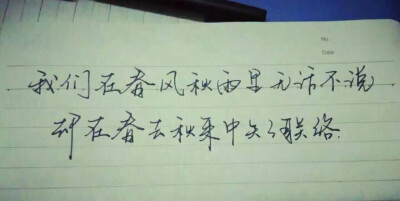 No.
Date
我们在春风秋雨里无话不说
却在春去秋来中失了联络.